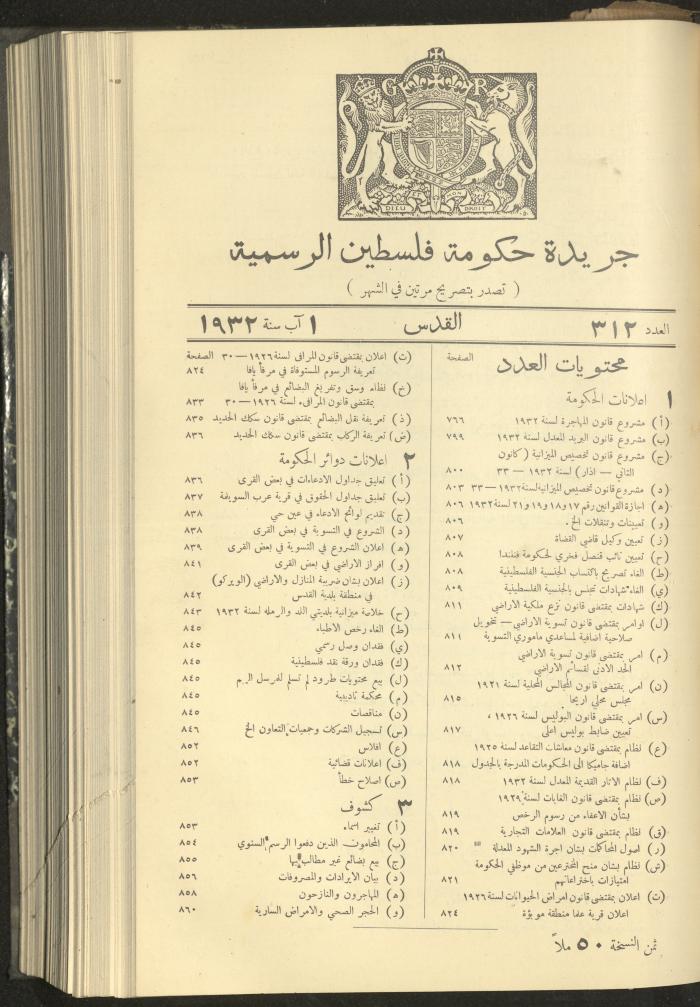 G R
DIEU ET MON DROIT
جريدة حكومة فلسطين الرسمية
( تصدر بتصريح مرتين في الشهر )
العدد ٣١٢ القدس ١ آب سنة ١٩٣٢
محتويات العدد الصفحة
١ اعلانات الحكومة
(أ) مشروع قانون المهاجرة لسنة ١٩٣٢ ٧٦٦
(ب) مشروع قانون البريد المعدل لسنة ١٩٣٢ ٧٩٩
(ج) مشروع قانون تخصيص الميزانية (كانون
الثاني — اذار) لسنة ١٩٣٢ — ٣٣ ٨٠٠
(د) مشروع قانون تخصيص الميزانية لسنة ١٩٣٢ — ٣٣ ٨٠٣
(ه) اجازة القوانين رقم ١٧ و١٨ و١٩ و٢١ لسنة ١٩٣٢ ٨٠٦
(و) تعيينات وتنقلات الخ. ٨٠٦
(ز) تعيين وكيل قاضي القضاة ٨٠٧
(ح) تعيين نائب قنصل فخري لحكومة فنلندا ٨٠٨
(ط) الغاء تصريح باكتساب الجنسية الفلسطينية ٨٠٨
(ي) الغاء شهادات تجنس بالجنسية الفلسطينية ٨٠٩
(ك) شهادات بمقتضى قانون نزع ملكية الاراضي ٨١١
(ل) اوامر بمقتضى قانون تسوية الاراضي — تخويل
صلاحية اضافية لمساعدي ماموري التسوية ٨١١
(م) امر بمقتضى قانون تسوية الاراضي
الحد الادنى لقسائم الاراضي ٨١٢
(ن) امر بمقتضى قانون المجالس المحلية لسنة ١٩٢١
مجلس محلي اريحا ٨١٥
(س) امر بمقتضى قانون البوليس لسنة ١٩٢٦ ،
تعيين ضابط بوليس اعلى ٨١٧
(ع) نظام بمقتضى قانون معاشات التقاعد لسنة ١٩٢٥
اضافة جاميكا الى الحكومات المدرجة بالجدول ٨١٨
(ف) نظام الاثار القديمة المعدل لسنة ١٩٣٢ ٨١٨
(ص) نظام بمقتضى قانون الغابات لسنة ١٩٢٦
بشأن الاعفاء من رسوم الرخص ٨١٩
(ق) نظام بمقتضى قانون العلامات التجارية ٨١٩
(ر) اصول المحاكمات بشان اجرة الشهود المعدلة ٨٢٠
(ش) نظام بشان منح المخترعين من موظفي الحكومة
امتيازات باختراعاتهم ٨٢١
(ت) اعلان بمقتضى قانون امراض الحيوانات لسنة ١٩٢٦
اعلان قرية عفا منطقة موبؤة ٨٢٤
(ث) اعلان بمقتضى قانون المرافئ لسنة ١٩٢٦ — ٣٠ الصفحة
تعريفة الرسوم المستوفاة في مرفأ يافا ٨٢٤
(خ) نظام وسق وتفريغ البضائع في مرفأ يافا
بمقتضى قانون المرافىء لسنة ١٩٢٦ — ٣٠ ٨٣٣
(ذ) تعريفة نقل البضائع بمقتضى قانون سكك الحديد ٨٣٥
(ض) تعريفة الركاب بمقتضى قانون سكك الحديد ٨٣٦
٢ اعلانات دوائر الحكومة
(أ) تعليق جداول الادعاءات في بعض القرى ٨٣٦
(ب) تعليق جداول الحقوق في قرية عرب السويفة ٨٣٧
(ج) تقديم لوائح الادعاء في عين حي ٨٣٨
(د) الشروع في التسوية في بعض القرى ٨٣٨
(ه) اعلان الشروع في التسوية في بعض القرى ٨٣٩
(و) افراز الاراضي في بعض القرى ٨٤١
(ز) اعلان بشان ضريبة المنازل والاراضي (الويركو)
في منطقة بلدية القدس ٨٤٢
(ح) خلاصة ميزانية بلديتي اللد والرمله لسنة ١٩٣٢ ٨٤٣
(ط) الغاء رخص الاطباء ٨٤٥
(ي) فقدان وصل رسمي ٨٤٥
(ك) فقدان ورقة نقد فلسطينية ٨٤٥
(ل) بيع محتويات طرود لم تسلم للمرسل اليهم ٨٤٥
(م) محكمة تاديبية ٨٤٥
(ن) مناقصات ٨٤٥
(س) تسجيل الشركات وجمعيات التعاون الخ ٨٤٦
(ع) افلاس ٨٥٢
(ف) اعلانات قضائية ٨٥٢
(ص) اصلاح خطأ ٨٥٣
٣ كشوف
(أ) تغيير اسماء ٨٥٣
(ب) المحامون الذين دفعوا الرسم السنوي ٨٥٤
(ج) بيع بضائع غير مطالب بها ٨٥٥
(د) بيان الايرادات والمصروفات ٨٥٦
(ه) المهاجرون والنازحون ٨٥٨
(و) الحجر الصحي والامراض السارية ٨٦٠
ثمن النسخة ٥٠ ملاً